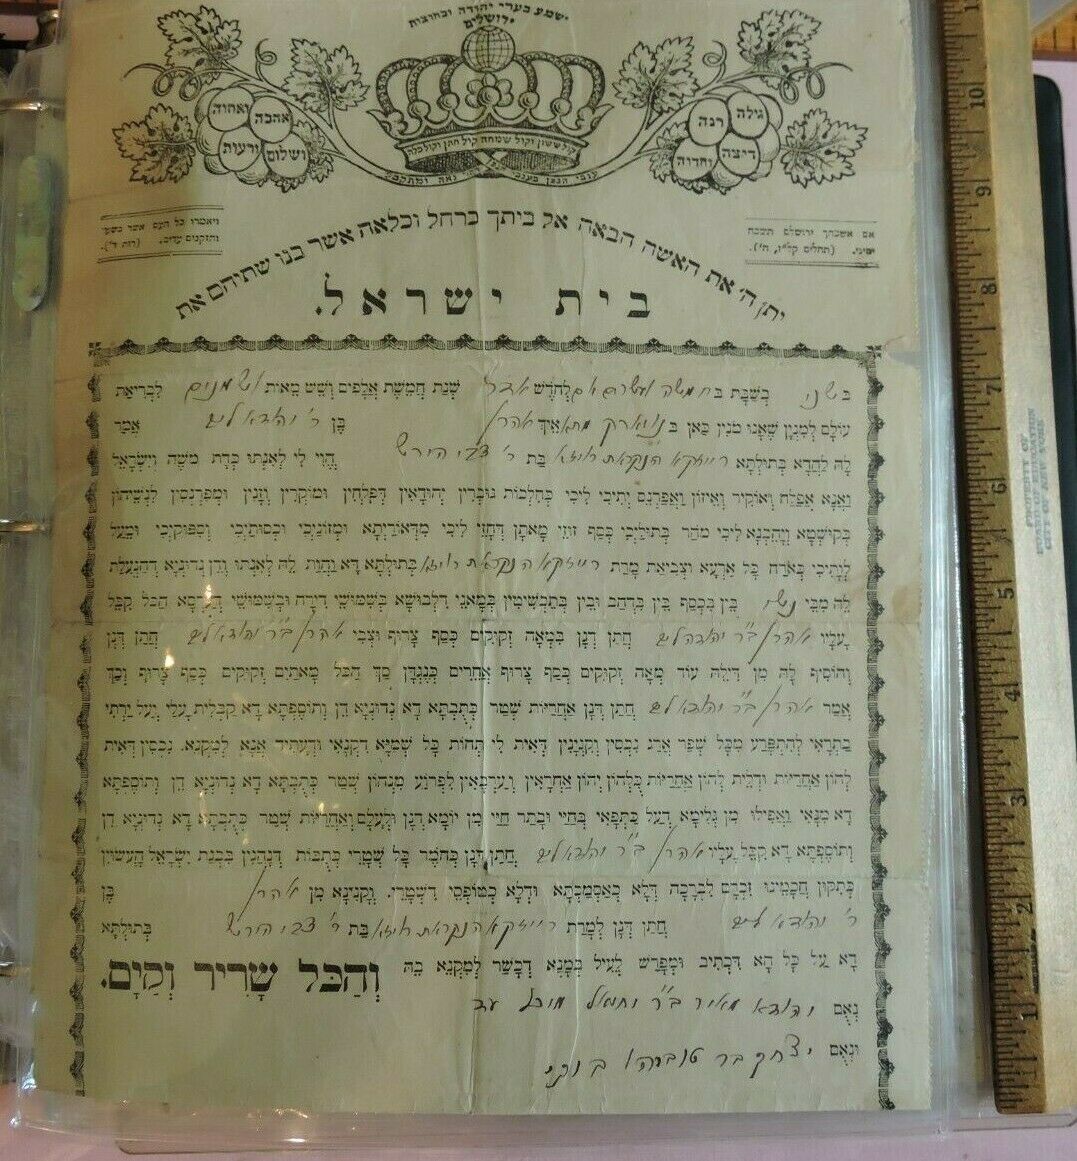 ישמע בערי יהודה ובחוצות
ירושלים
קול ששון וקול שמחה קול חתן וקול כלה
ענבי הגפן בענבי נאה ומתקבל
אהבה ואחוה
ושלום ורעות
גילה רנה
דיצה וחדוה
ויאמרו כל העם אשר בשער
והזקנים עדים. (רות ד').
אם אשכחך ירושלם תשכח
ימיני. (תהלים קל"ז, ה').
יתן ה' את האשה הבאה אל ביתך כרחל וכלאה אשר בנו שתיהם את
בית ישראל.
בשני בשבת בחמשה ועשרים לחדש שנת חמשת אלפים ושש מאות ושמנים לבריאת
עולם למנין שאנו מנין כאן בנוארק מתא איך אהרן בן ר' אמר
לה להדא בתולתא רייזקא הנקראת רויזא בת ר' צבי הירש הוי לי לאנתו כדת משה וישראל
ואנא אפלח ואוקיר ואיזון ואפרנס יתיכי ליכי כהלכות גוברין יהודאין דפלחין ומוקרין וזנין ומפרנסין לנשיהון
בקושטא ויהבנא ליכי מהר בתוליכי כסף זוזי מאתן דחזי ליכי מדאורייתא ומזוניכי וכסותיכי וסיפוקיכי ומעל
לותיכי כארח כל ארעא וצביאת מרת רייזקא הנקראת רויזא בתולתא דא והות לה לאנתו ודן נדוניא דהנעלת
לה מבי נשא בין בכסף בין בדהב ובין בתכשיטין במאני דלבושא בשמושי דירה ובשמושי דערסא הכל קבל
עליו אהרן ב"ר חתן דנן במאה זקוקים כסף צרוף וצבי אהרן ב"ר חתן דנן
והוסיף לה מן דילה עוד מאה זקוקים כסף צרוף אחרים כנגדן סך הכל מאתים זקוקים כסף צרוף וכך
אמר אהרן ב"ר חתן דנן אחריות שטר כתובתא דא נדוניא דן ותוספתא דא קבלית עלי ועל ירתי
בתראי להתפרע מכל שפר ארג נכסין וקנינין דאית לי תחות כל שמיא דקנאי ודעתיד אנא למקנא. נכסין דאית
להון אחריות ודלית להון אחריות כלהון יהון אחראין וערבאין לפרוע מנהון שטר כתובתא דא נדוניא דן ותוספתא
דא מנאי ואפילו מן גלימא דעל כתפאי בחיי ובתר חיי מן יומא דנן ולעלם ואחריות שטר כתובתא דא נדוניא דן
ותוספתא דא קבל עליו אהרן ב"ר חתן דנן כחומר כל שטרי כתבות דנהגין בבנת ישראל העשוין
כתקון חכמינו זכרם לברכה דלא כאסמכתא ודלא כטופסי דשטרי. וקנינא מן אהרן בן
ר' חתן דנן למרת רייזקא הנקראת רויזא בת ר' צבי הירש בתולתא
דא על כל הא דכתיב ומפרש לעיל במנא דכשר למקנא בה והכל שריר וקים.
נאם יהודא מאיר ב"ר עד
ונאם יצחק בר טוביהו
PROPERTY OF